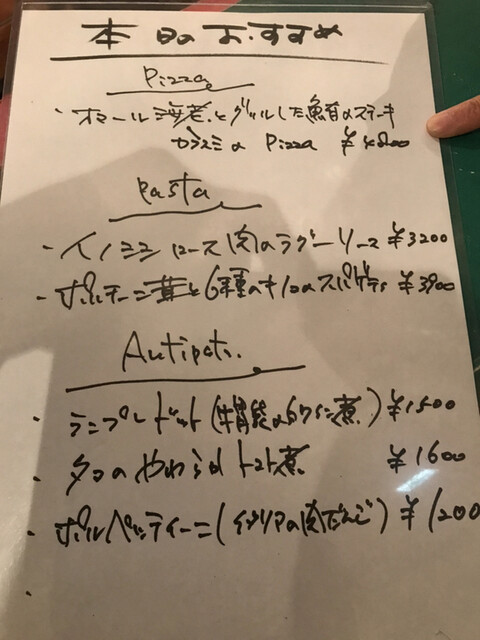 本日のおすすめ
Pizza
・オマール海老とグリルした鮪のステーキ
カラスミの Pizza ¥4800
Pasta
・イノシシ ロース肉のラグーソース ¥3200
・ポルチーニ茸と6種のキノコのスパゲティ ¥3900
Antipasti.
・ランプレドット(牛胃の白ワイン煮) ¥1500
・タコのやわらかトマト煮 ¥1600
・ポルペッティーニ(イタリアの肉だんご) ¥1200
・